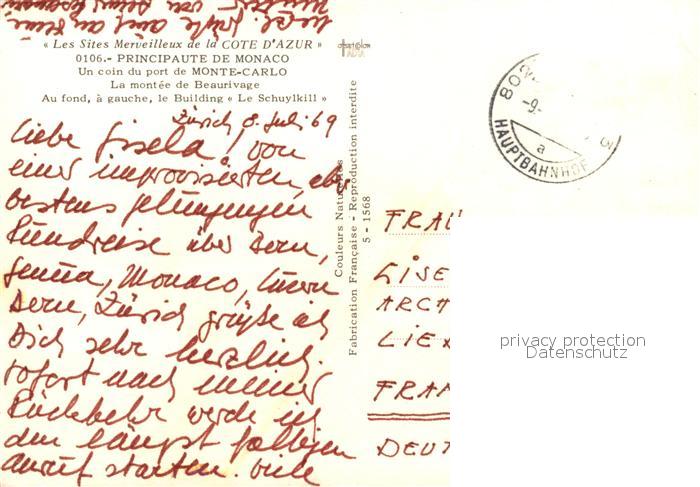 « Les Sites Merveilleux de la COTE D'AZUR »
0106.- PRINCIPAUTE DE MONACO
Un coin du port de MONTE-CARLO
La montée de Beaurivage
Au fond, à gauche, le Building « Le Schuylkill »
Zürich 8. Juli 69
Liebe Gisela! von
einer improvisierten, aber
bestens gelungenen
Rundreise über Bern,
Genua, Monaco, Luzern
Bern, Zürich grüße ich
Dich sehr herzlich.
Sofort nach meiner
Rückkehr werde ich
den längst fälligen
Anruf starten. Viele
Couleurs Naturelles
Fabrication Française - Reproduction interdite
5 - 1568
HAUPTBAHNHOF
a
-9.
FRAU
GISE
ARCH
LIEX
FRAN
DEUT
privacy protection
Datenschutz